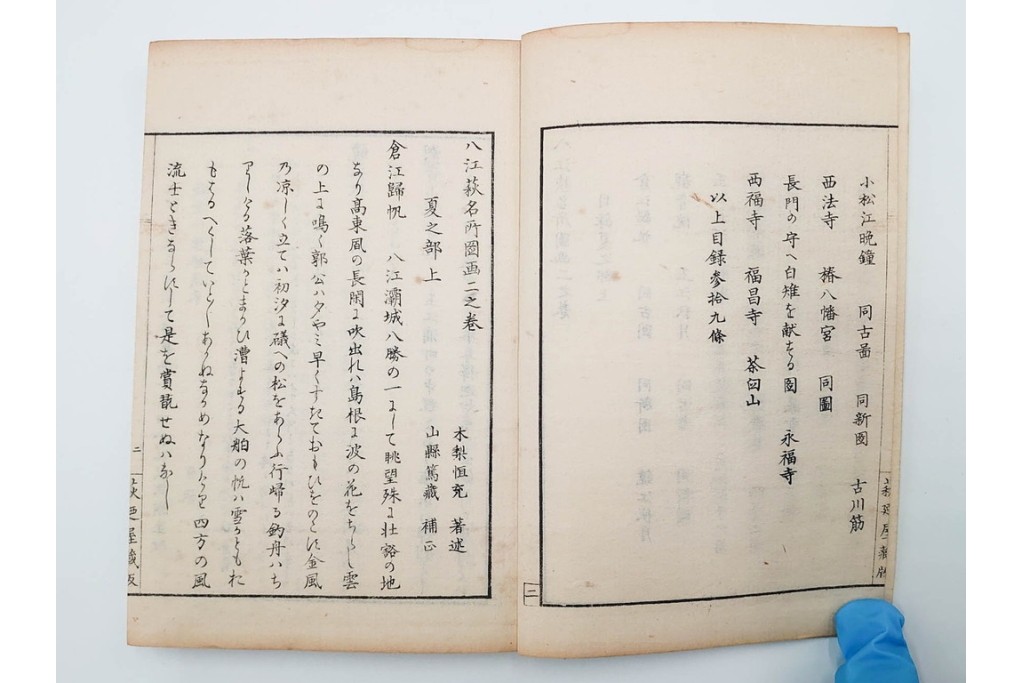 小松江晩鐘　同古啚　同新圖　古川筋
西法寺　椿八幡宮　同圖
長門の守へ白雉を献する圖　永福寺
西福寺　福昌寺　茶臼山
以上目録參拾九條
二
八江萩名所圖画二之卷
夏之部上
木梨恒充　著述
山縣篤藏　補正
倉江歸帆　八江灞城八勝の一にして眺望殊に壮谿の地
なり髙東風の長閑に吹出れハ島根に波の花をちらし雲
の上に鳴く郭公ハ夕やミ早くすきておもひをのこす金風
乃凉しく立てハ初汐に礒への松をあらふ行帰る釣舟ハち
りしける落葉かとまかひ漕よする大舶の帆ハ雪かともれ
もるへくしていとしあかぬなかめなりけり四方の風
流士ときならすして是を賞翫せぬハなし
二